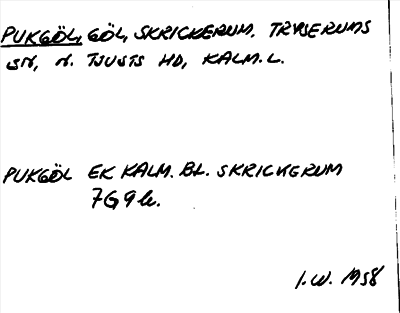 PUKGÖL, GÖL, SKRICKERUM, TRYSERUMS
SN, N. TJUSTS HD, KALM. L.
PUKGÖL EK KALM. BL. SKRICKERUM
7G9b.
I.W. 1958